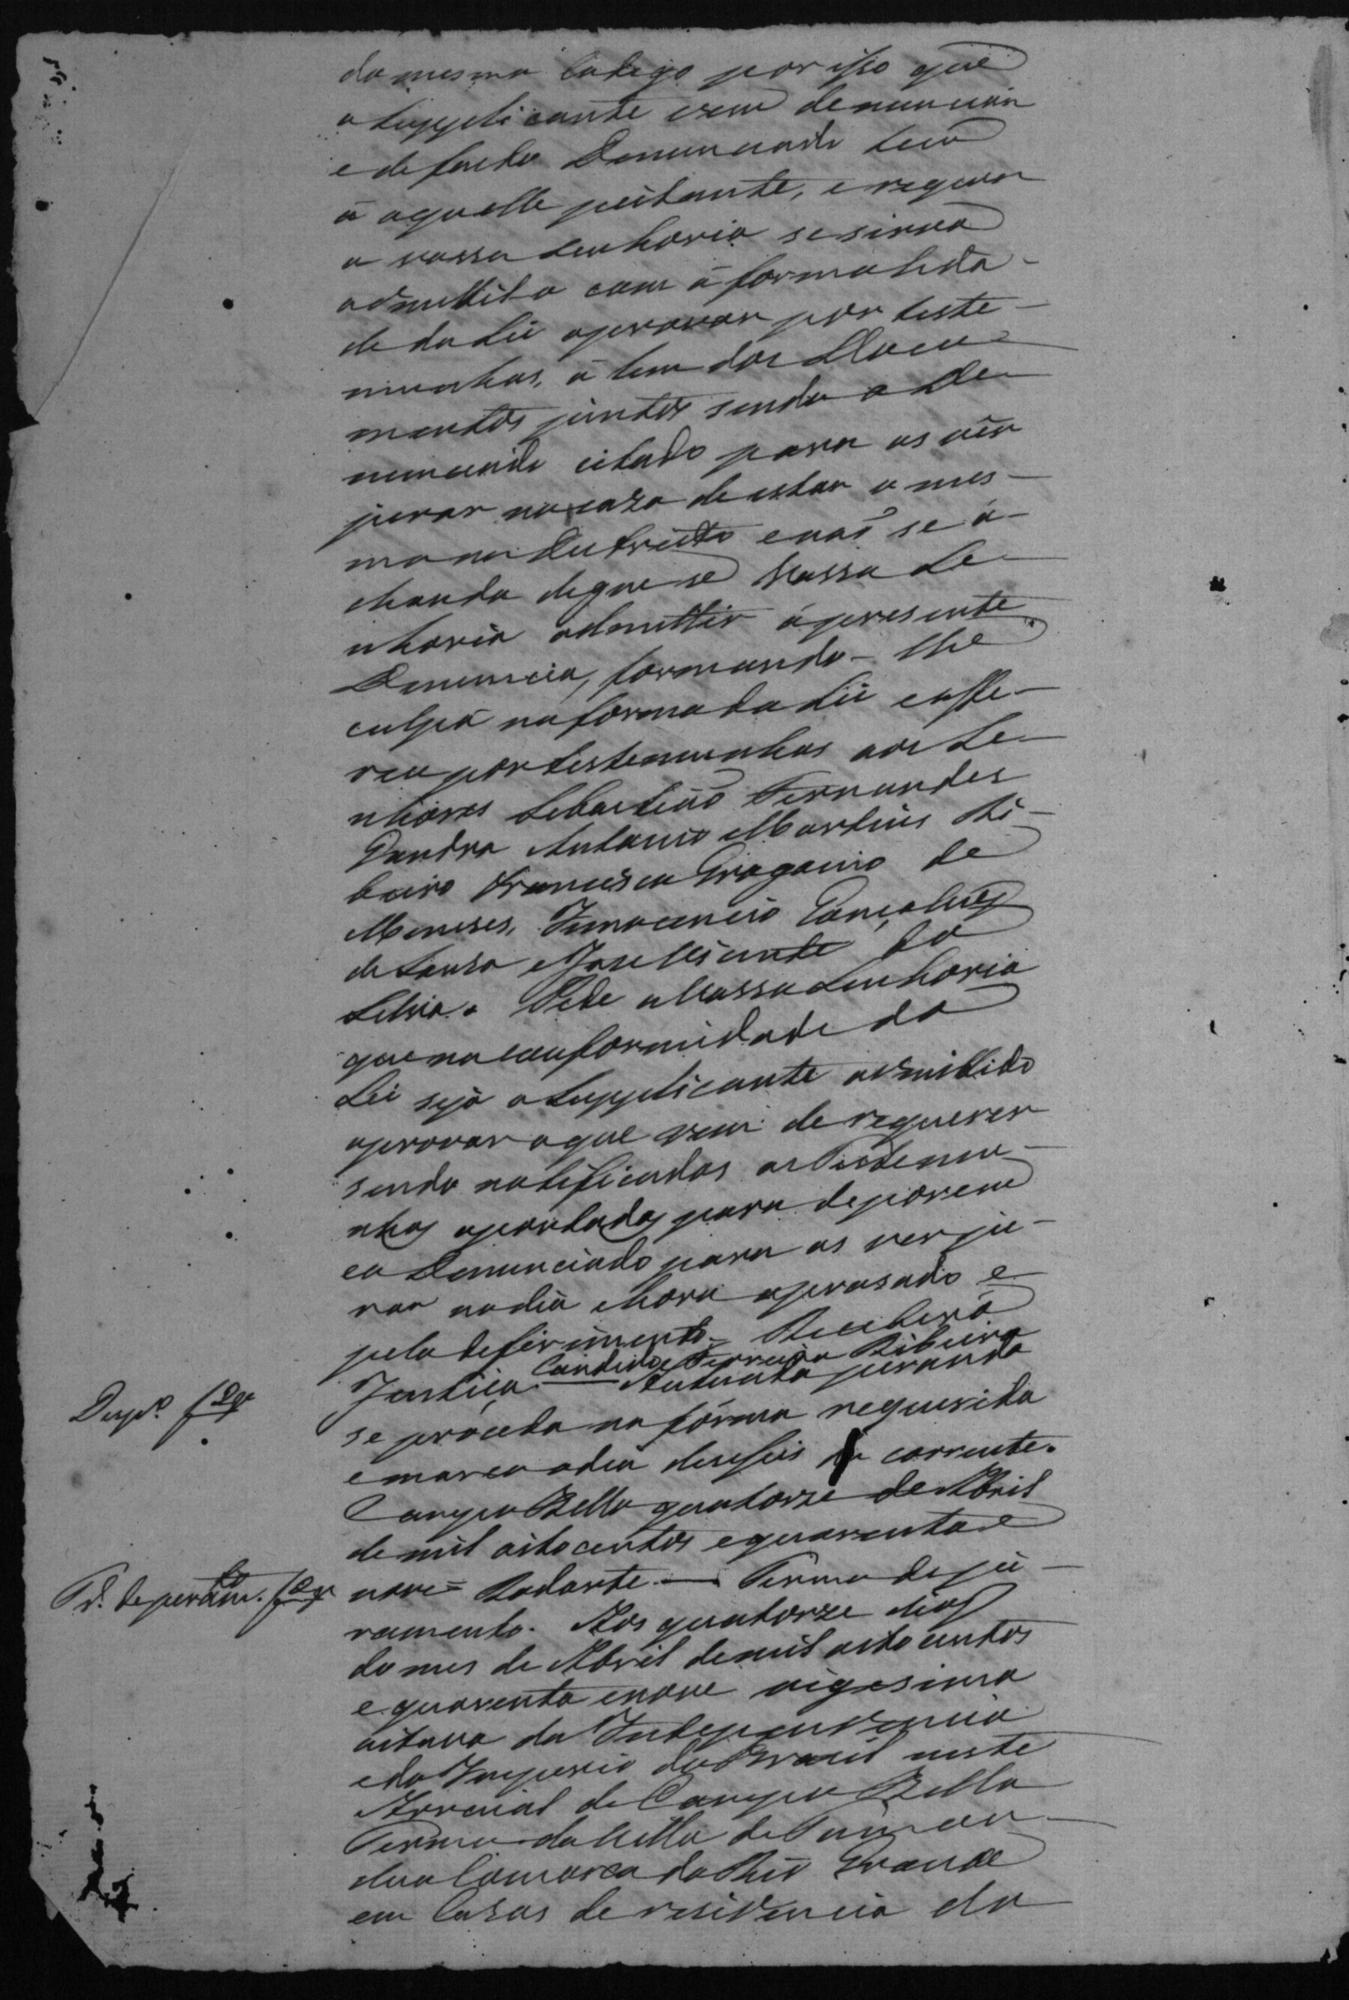 do mesmo Codigo por isso que
o Supplicante vem denunciar
e de facto Denunciado tem
á aquelle peitante, e requer
a vossa Senhoria se sirva
admittilo com á formalida-
de da Lei aprovar por teste-
munhas, á lem dos Docu-
mentos juntos sendo o De-
nunciado citado para as vêr
jurar no cazo de estar o mes-
mo no Destricto e não se á-
chando digne se Vossa Se-
nhoria admittir á presente
Denuncia, formando-lhe
culpa na forma da Lei e offe-
rece por testemunhas aos Se-
nhores Sebastião Fernandes
Antonio Martins Ri-
beiro Francisco de
Meneses, Innocencio Gonçalves
de Souza e Jose Vicente da
Silva. Pede a Vossa Senhoria
que na conformidade da
Lei seja o Supplicante admittido
aprovar o que vem de requerer
sendo notificadas as Testemu-
nhas apontadas para deporem
eo Denunciado para as ver ju-
rar no dia e hora aprasado e
pelo deferimento = Receberá
Justiça. Candido Ferreira Ribeiro
Autuada jurando
Desp.º
se proceda na fórma requerida
e marco o dia deseseis do corrente.
Campo Bello quatorze de Abril
de mil oitocentos e quarenta e
nove = Termo de ju-
ramento. Aos quatorze dias
do mes de Abril de mil oito centos
e quarenta e nove vigesimo
oitavo da Independencia
e do Imperio do Brasil neste
Arraial de Campo Bello
Termo da Villa de Taman-
dua Comarca do Rio Grande
em Casas de residencia do